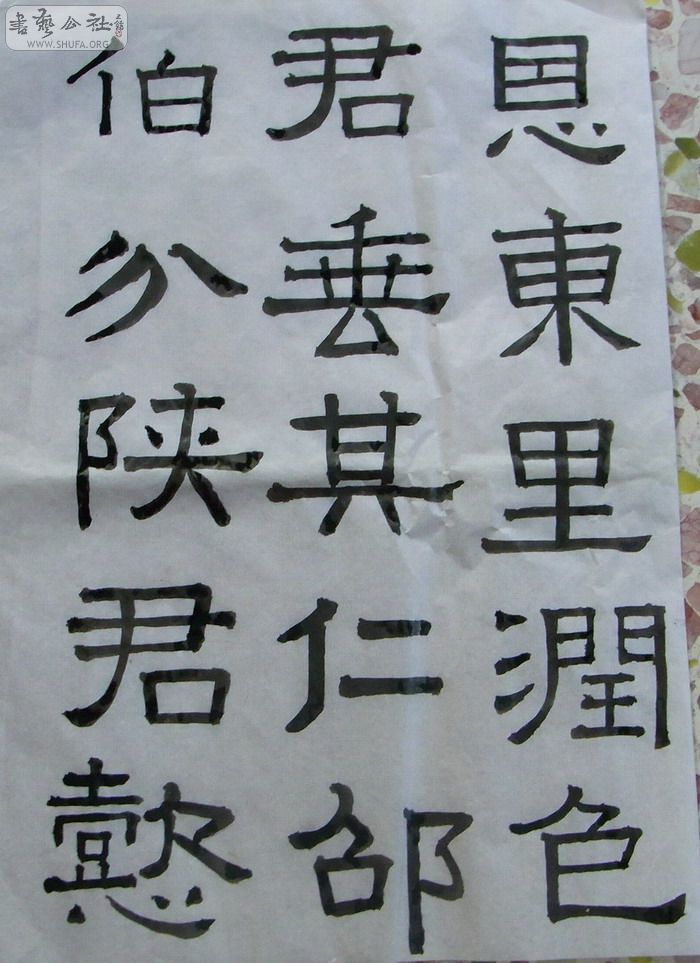 恩東里潤色
君垂其仁邵
伯分陕君懿
書藝公社
WWW.SHUFA.ORG